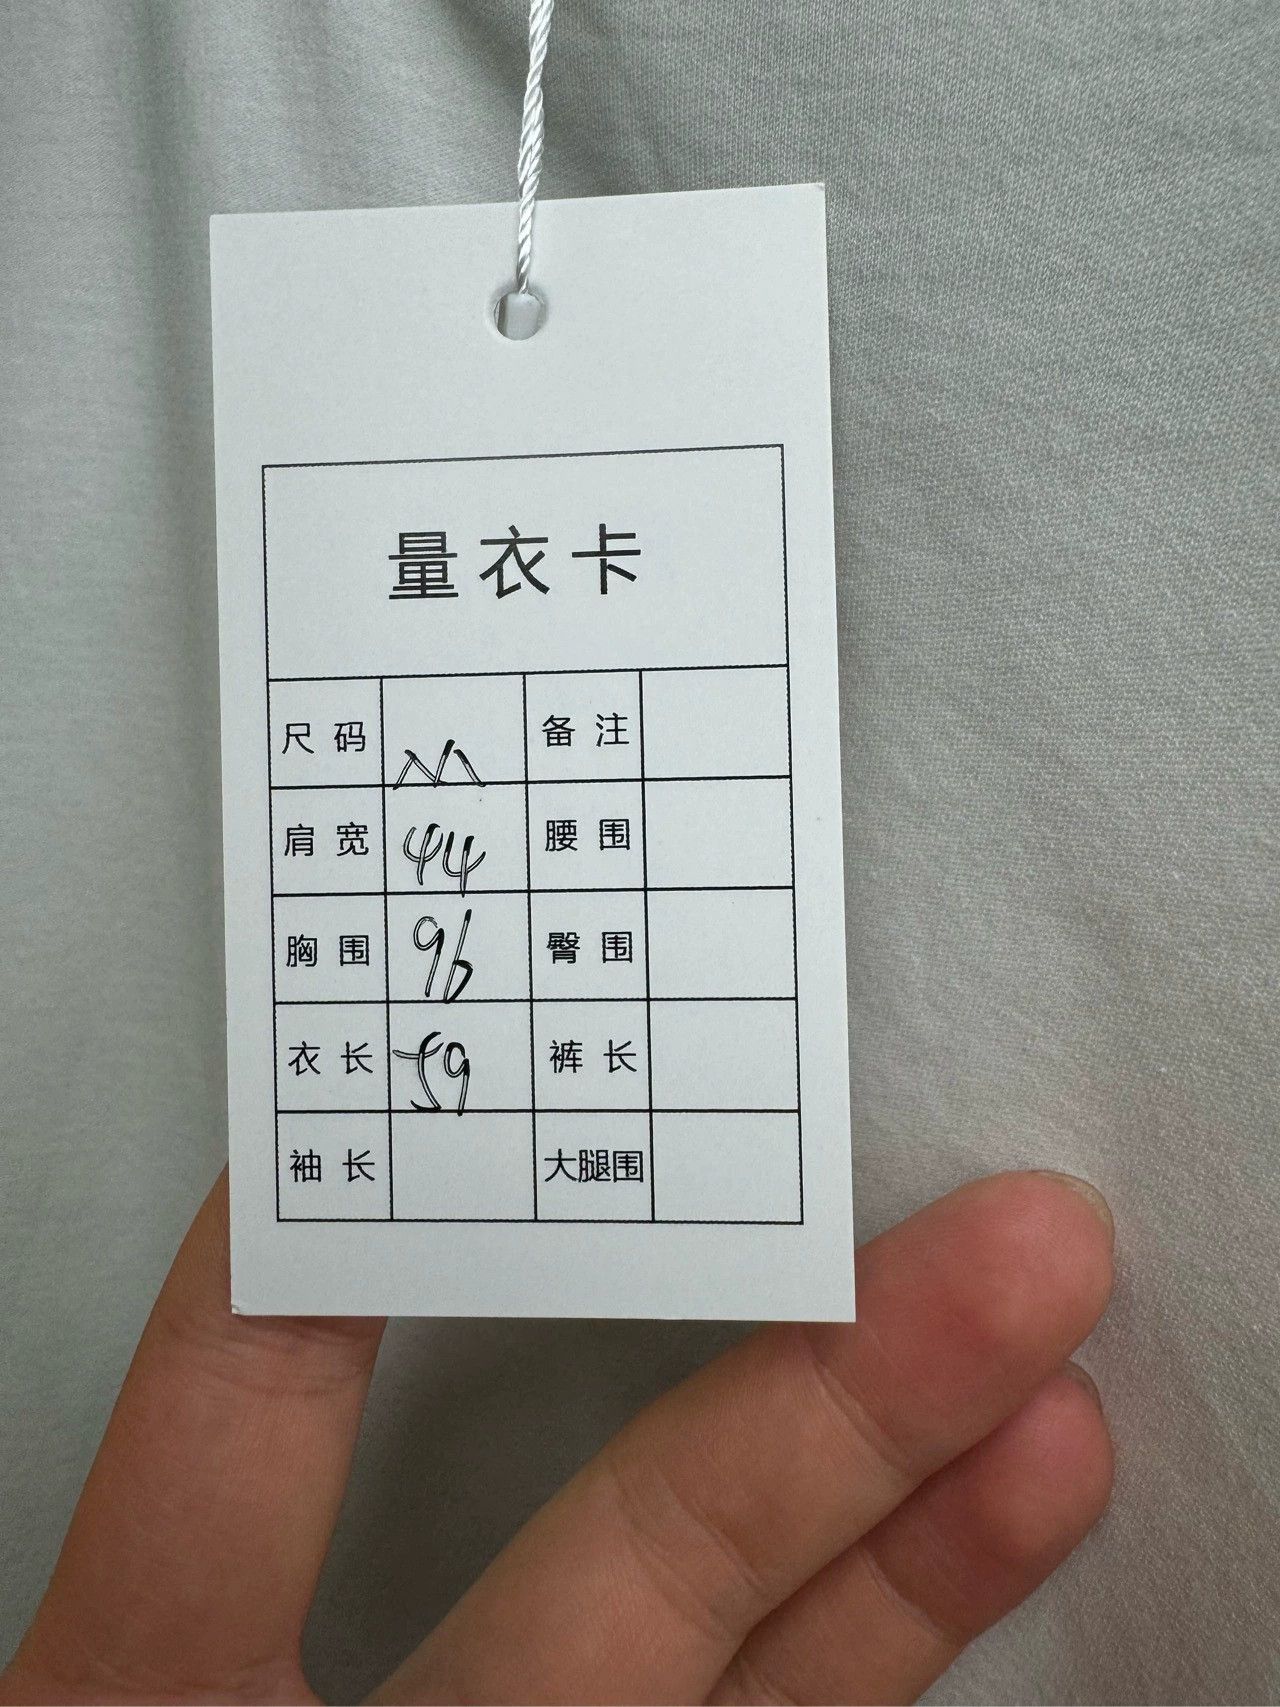 量衣卡
尺码 M 备注
肩宽 44 腰围
胸围 96 臀围
衣长 59 裤长
袖长 大腿围